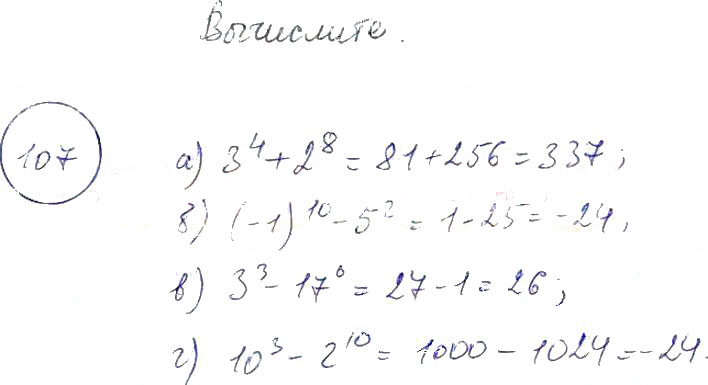 Вычислите.
107 а) 3⁴ + 2⁸ = 81 + 256 = 337;
б) (-1)¹⁰ - 5² = 1 - 25 = -24,
в) 3³ - 17⁰ = 27 - 1 = 26;
г) 10³ - 2¹⁰ = 1000 - 1024 = -24.